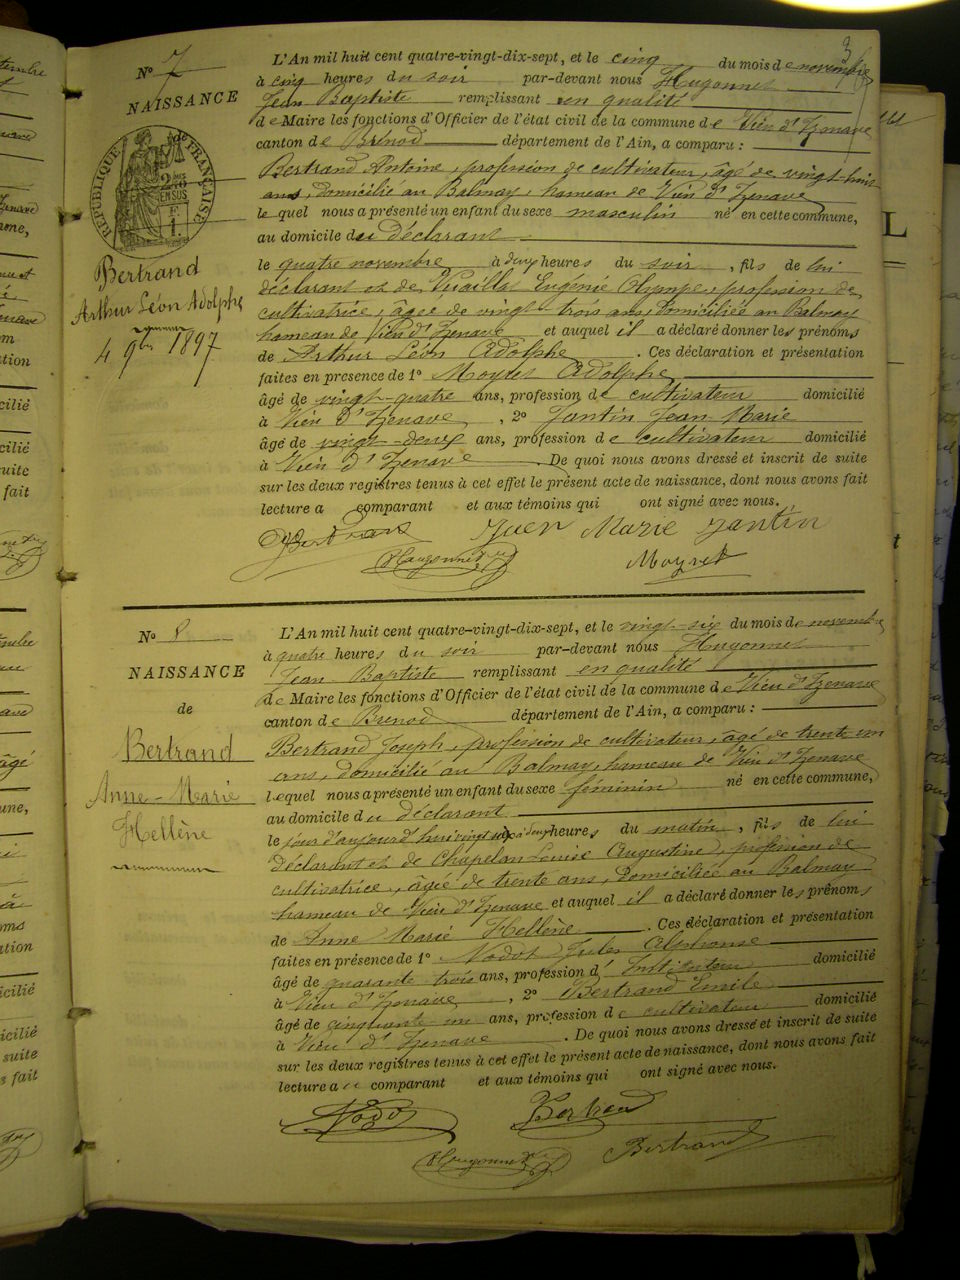 3
Nº 7
NAISSANCE
RÉPUBLIQUE FRANÇAISE
EN SUS
F.
1.
Bertrand
Arthur Léon Adolphe
4 9bre 1897
L'An mil huit cent quatre-vingt-dix-sept, et le cinq du mois de novembre
à cinq heures du soir par-devant nous Hugonnet
Jean Baptiste remplissant en qualité
de Maire les fonctions d'Officier de l'état civil de la commune de Vieu d'Izenave
canton de Brénod département de l'Ain, a comparu :
Bertrand Antoine, profession de cultivateur, âgé de vingt-huit
ans, domicilié au Balmay, hameau de Vieu d'Izenave
lequel nous a présenté un enfant du sexe masculin né en cette commune,
au domicile du déclarant
le quatre novembre à deux heures du soir, fils de lui
déclarant et de Eugénie Olympe, profession de
cultivatrice, âgée de vingt trois ans, domiciliée au Balmay
hameau de Vieu d'Izenave et auquel il a déclaré donner les prénoms
de Arthur Léon Adolphe. Ces déclaration et présentation
faites en présence de 1º Moyret Adolphe
âgé de vingt-quatre ans, profession de cultivateur domicilié
à Vieu d'Izenave, 2º Jantin Jean Marie
âgé de vingt-deux ans, profession de cultivateur domicilié
à Vieu d'Izenave. De quoi nous avons dressé et inscrit de suite
sur les deux registres tenus à cet effet le présent acte de naissance, dont nous avons fait
lecture a comparant et aux témoins qui ont signé avec nous.
Bertrand Juen Marie Jantin
Hugonnet Moyret
Nº 8
NAISSANCE
de
Bertrand
Anne-Marie
Hellène
L'An mil huit cent quatre-vingt-dix-sept, et le vingt-six du mois de novembre
à quatre heures du soir par-devant nous Hugonnet
Jean Baptiste remplissant en qualité
de Maire les fonctions d'Officier de l'état civil de la commune de Vieu d'Izenave
canton de Brénod département de l'Ain, a comparu :
Bertrand Joseph, profession de cultivateur, âgé de trente un
ans, domicilié au Balmay, hameau de Vieu d'Izenave
lequel nous a présenté un enfant du sexe féminin né en cette commune,
au domicile du déclarant
le jour d'aujourd'hui vingt six à deux heures du matin, fils de lui
déclarant et de Chapelan Louise Augustine, profession de
cultivatrice, âgée de trente ans, domiciliée au Balmay
hameau de Vieu d'Izenave et auquel il a déclaré donner les prénoms
de Anne Marie Hellène. Ces déclaration et présentation
faites en présence de 1º Nodot Jules Alphonse
âgé de quarante trois ans, profession d'Instituteur domicilié
à Vieu d'Izenave, 2º Bertrand Emile
âgé de cinquante un ans, profession de cultivateur domicilié
à Vieu d'Izenave. De quoi nous avons dressé et inscrit de suite
sur les deux registres tenus à cet effet le présent acte de naissance, dont nous avons fait
lecture au comparant et aux témoins qui ont signé avec nous.
Nodot Bertrand
Hugonnet Bertrand